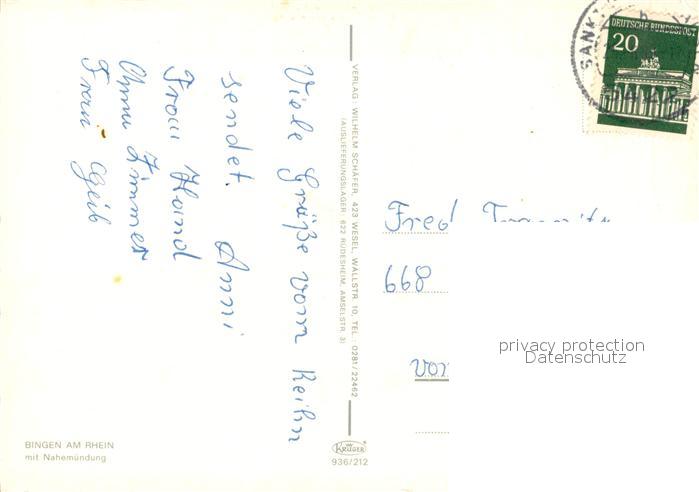 Viele Grüße vom Reihn
sendet. Anni
Frau Hand
Anna Zimmer
Frau Geib
VERLAG: WILHELM SCHÄFER, 423 WESEL, WALLSTR. 10, TEL.: 0281/22462
(AUSLIEFERUNGSLAGER: 622 RÜDESHEIM, AMSELSTR. 3)
DEUTSCHE BUNDESPOST
20
SANKT
Fred
668
privacy protection
Datenschutz
BINGEN AM RHEIN
mit Nahemündung
KRÜGER
936/212